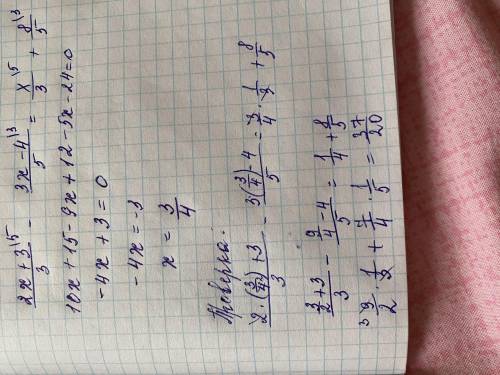 (2x+3)/3 \5 - (3x-4)/5 \3 = x/3 \5 + 8/5 \3
10x+15-9x+12-5x-24=0
-4x+3=0
-4x=-3
x = 3/4
Проверка:
(2·(3/4)+3)/3 - (3(3/4)-4)/5 = 3/4 · 1/3 + 8/5
(3/2+3)/3 - (9/4-4)/5 = 1/4 + 8/5
9/2 · 1/3 + 7/4 · 1/5 = 37/20